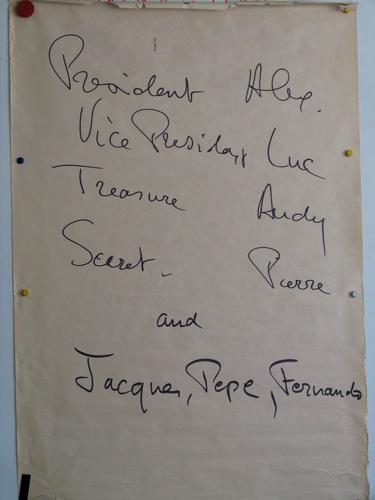 President Alex.
Vice President Luc
Treasure Andy
Secret. Pierre
and
Jacques, Pepe, Fernando